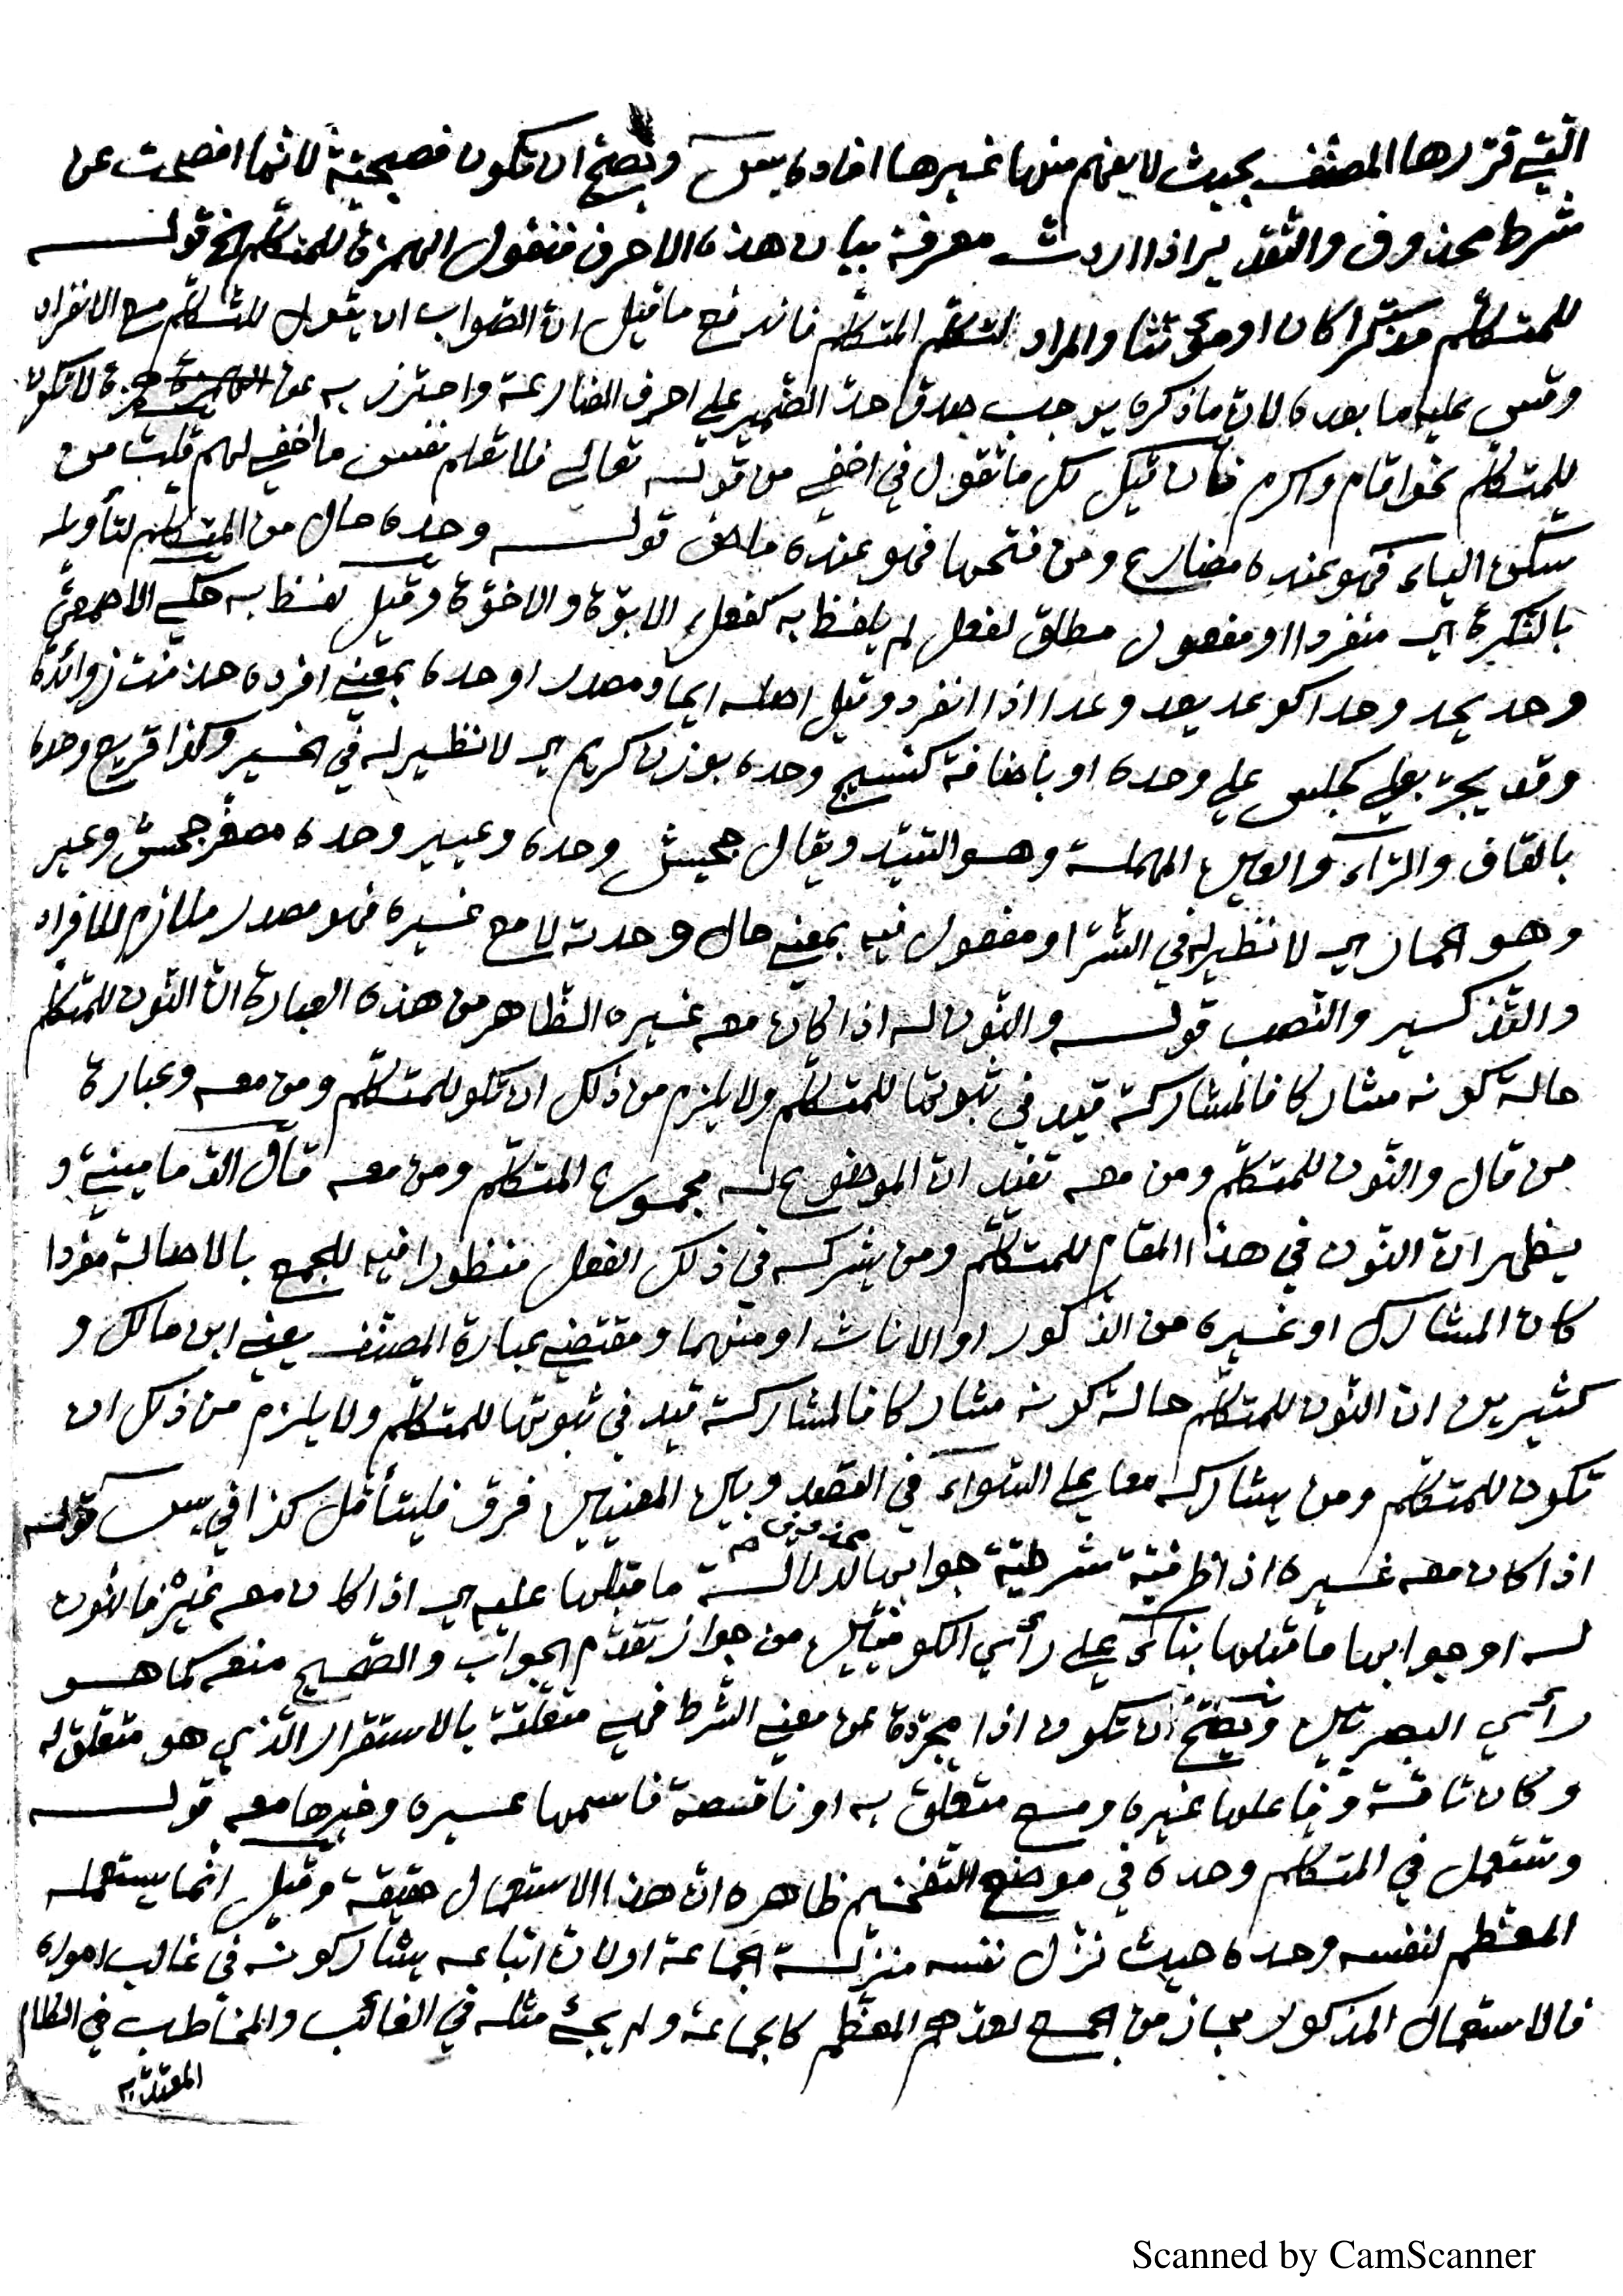 الّتي قرّرها المصنّف بحيث لا يفهم منها غيرها افاده يس ويصحّ ان تكون فصيحيّة لانّها افصحت عن
شرط محذوف والتّقدير اذا اردت معرفة بيان هذه الاحرف فنقول الهمزة للمتكلّم الخ قولـــه
للمتكلّم مذكّرا كان او مؤنّثا والمراد لتكلّم المتكلّم فاندفع ما قيل انّ الصّواب ان يقول للتّكلّم مع الانفراد
وقس عليه ما بعده لانّ ما ذكره يوجب صدق حدّ الضّمير على احرف المضارعة واحترز به عن همزة لا تكون
للمتكلّم نحو اقام واكرم فان قيل لك ما تقول في اخفي من قوله تعالى فلا تعلم نفس ما اخفي لهم قلت من
سكّن الياء فهو عنده مضارع ومن فتحها فهو عنده ماض قولـــه وحده حال من المتكلّم لتأويله
بالنّكرة اي منفردا او مفعول مطلق لفعل لم يلفظ به كفعل الابوّة والاخوّة وقيل لفظ به حكى الاصمعيّ
وحد يحد وحدا كوعد يعد وعدا اذا انفرد وقيل اصله ايحاد مصدر اوحده بمعنى افرده حذفت زوائده
وقد يجرّ بعلى كجلس على وحده او باضافة كنسيج وحده بوزن كريم اي لا نظير له في الخير وكذا قريع وحده
بالقاف والرّاء والعين المهملة وهو السّيّد ويقال جحيش وحده وعيير وحده مصغّر جحش وعير
وهو الحمار اي لا نظير له في الشّرّ او مفعول فيه بمعنى حال وحدته لا مع غيره فهو مصدر ملازم للافراد
والتّذكير والنّصب قولـــه والنّون له اذا كان معه غيره الظّاهر من هذه العبارة انّ النّون للمتكلّم
حالة كونه مشاركا فالمشاركة قيد في ثبوتها للمتكلّم ولا يلزم من ذلك ان تكون للمتكلّم ومن معه وعبارة
من قال والنّون للمتكلّم ومن معه تفيد انّ الموضوع له مجموع المتكلّم ومن معه قال الدّمامينيّ و
يظهر انّ النّون في هذا المقام للمتكلّم ومن يشركه في ذلك الفعل منظورا فيه للجمع بالاصالة مفردا
كان المشارك او غيره من الذّكور او الاناث او منهما ومقتضى عبارة المصنّف يعني ابن مالك و
كثيرين انّ النّون للمتكلّم حالة كونه مشاركا فالمشاركة قيد في ثبوتها للمتكلّم ولا يلزم من ذلك ان
تكون للمتكلّم ومن يشاركه معا على السّواء في القصد وبين المعنيين فرق فليتأمّل كذا في يس قولـه
اذا كان معه غيره اذا ظرفيّة شرطيّة جوابها محذوف لدلالة ما قبلها عليه اي اذا كان معه غيره فالنّون
له او جوابها ما قبلها بناء على رأي الكوفيّين من جواز تقدّم الجواب والصّحيح منعه كما هو
رأي البصريّين ويصحّ ان تكون اذا مجرّدة عن معنى الشّرط فهي متعلّقة بالاستقرار الّذي هو متعلّق له
وكان تامّة وفاعلها غيره ومع متعلّق به او ناقصة فاسمها غيره وخبرها معه قولـــه
وتستعمل في المتكلّم وحده في موضع التّفخيم ظاهره انّ هذا الاستعمال حقيقة وقيل انّما يستعمله
المعظّم لنفسه وحده حيث نزّل نفسه منزلة الجماعة او لانّ اتباعه يشاركونه في غالب اموره
فالاستعمال المذكور مجاز من الجمع لعدّهم المعظّم كالجماعة ولم يجئ مثله في الغائب والمخاطب في الكلام
المعتدّ به
Scanned by CamScanner